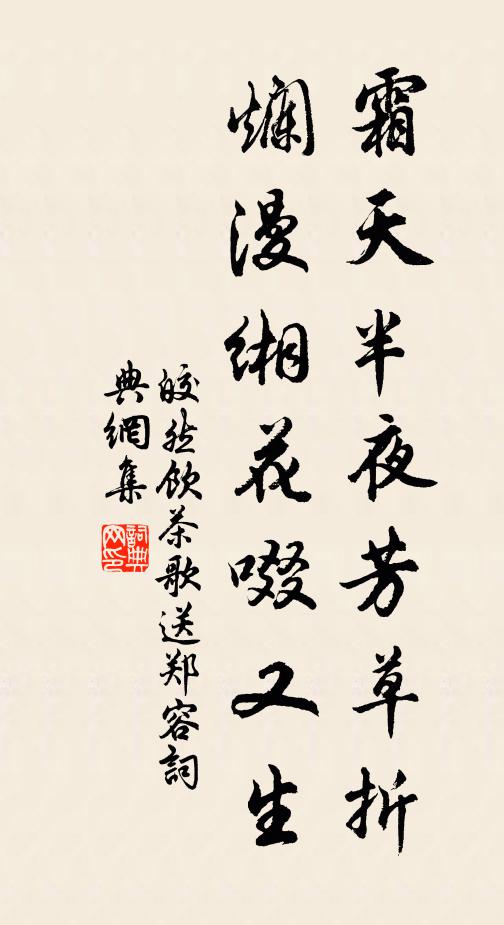 霜天半夜芳草折
爛漫緗花啜又生
皎然飲茶歌送郑容詞
典網集
詞典网印